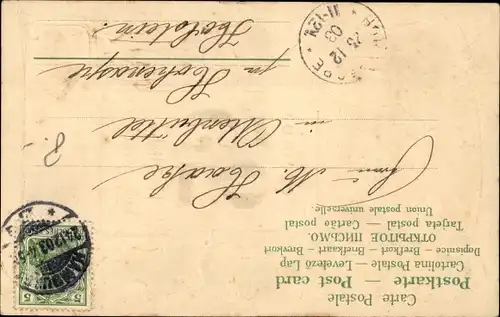 Carte Postale
Postkarte — Post card
Cartolina Postale — Levelező Lap
Dopisnice — Brefkort — Briefkaart — Brevkort
ОТКРЫТОЕ ПИСЬМО.
Tarjeta postal — Cartão postal
Union postale universelle.
Frau M. Haake
in Ottenbüttel
pr Hohenaspe
Holstein.
23 12 03
11-12V
5 5
8.-